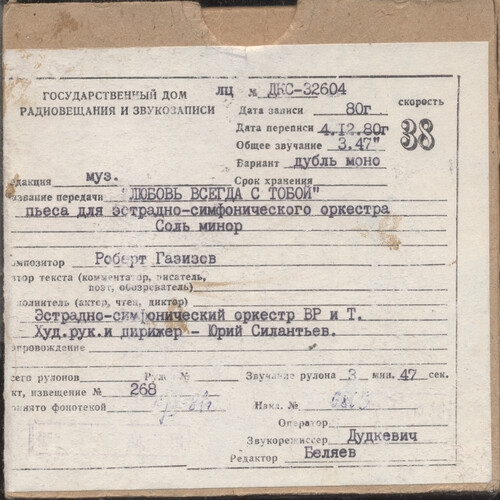 ГОСУДАРСТВЕННЫЙ ДОМ
РАДИОВЕЩАНИЯ И ЗВУКОЗАПИСИ
ЛЦ № ДКС-32604
Дата записи 80г
скорость
Дата переписи 4.12.80г
38
Общее звучание 3.47"
Вариант дубль моно
дакция муз.
Срок хранения
звание передачи "ЛЮБОВЬ ВСЕГДА С ТОБОЙ"
пьеса для эстрадно-симфонического оркестра
Соль минор
мпозитор Роберт Газизов
тор текста (комментатор, писатель,
поэт, обозреватель)
полнитель (актер, чтец, диктор)
Эстрадно-симфонический оркестр ВР и Т.
Худ.рук.и дирижер - Юрий Силантьев.
провождение
сего рулонов Рулон №
Звучание рулона 3 мин. 47 сек.
кт, извещение № 268
инято фонотекой
Накл. №
Оператор
Звукорежиссер Дудкевич
Редактор Беляев